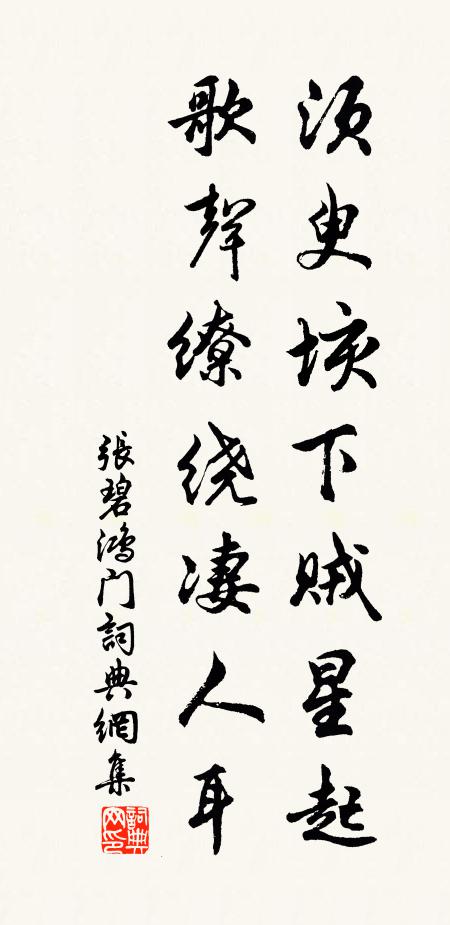 須臾垓下賊星起
歌聲繚绕凄人耳
張碧鴻门詞典網集
詞典
网印